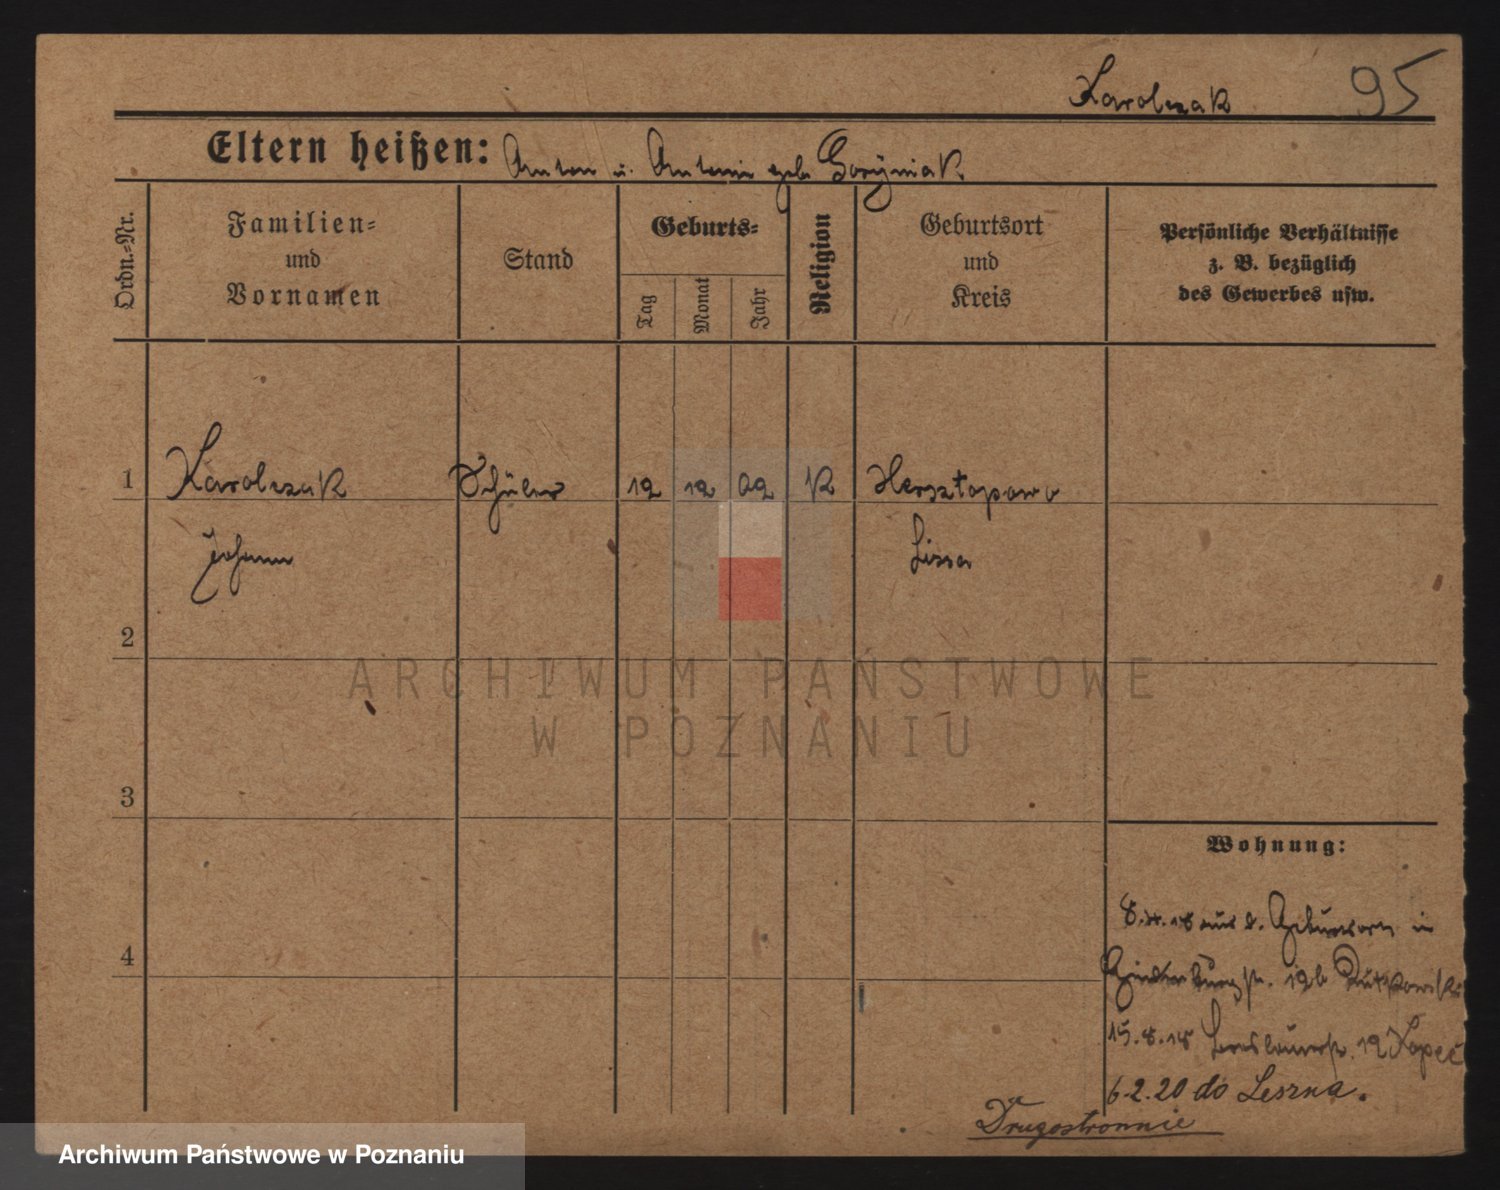 Karolczak 95
Eltern heißen: Anton u. Antonie geb. Goryniak.
Ordn.=Nr.
Familien=
und
Vornamen
Stand
Geburts=
Tag
Monat
Jahr
Religion
Geburtsort
und
Kreis
Persönliche Verhältnisse
z. B. bezüglich
des Gewerbes usw.
1 Karolczak Schüler 12 12 02 K Hersztopowo
Johann Lissa
2
3
4
Wohnung:
8.4.18 aus d. Geburtsort in
Hindenburgstr. 12b Rutkowski
15.8.18 Breslauerstr. 12 Kopeć
6.2.20 do Leszna.
Drugostronnie
ARCHIWUM PAŃSTWOWE
W POZNANIU
Archiwum Państwowe w Poznaniu